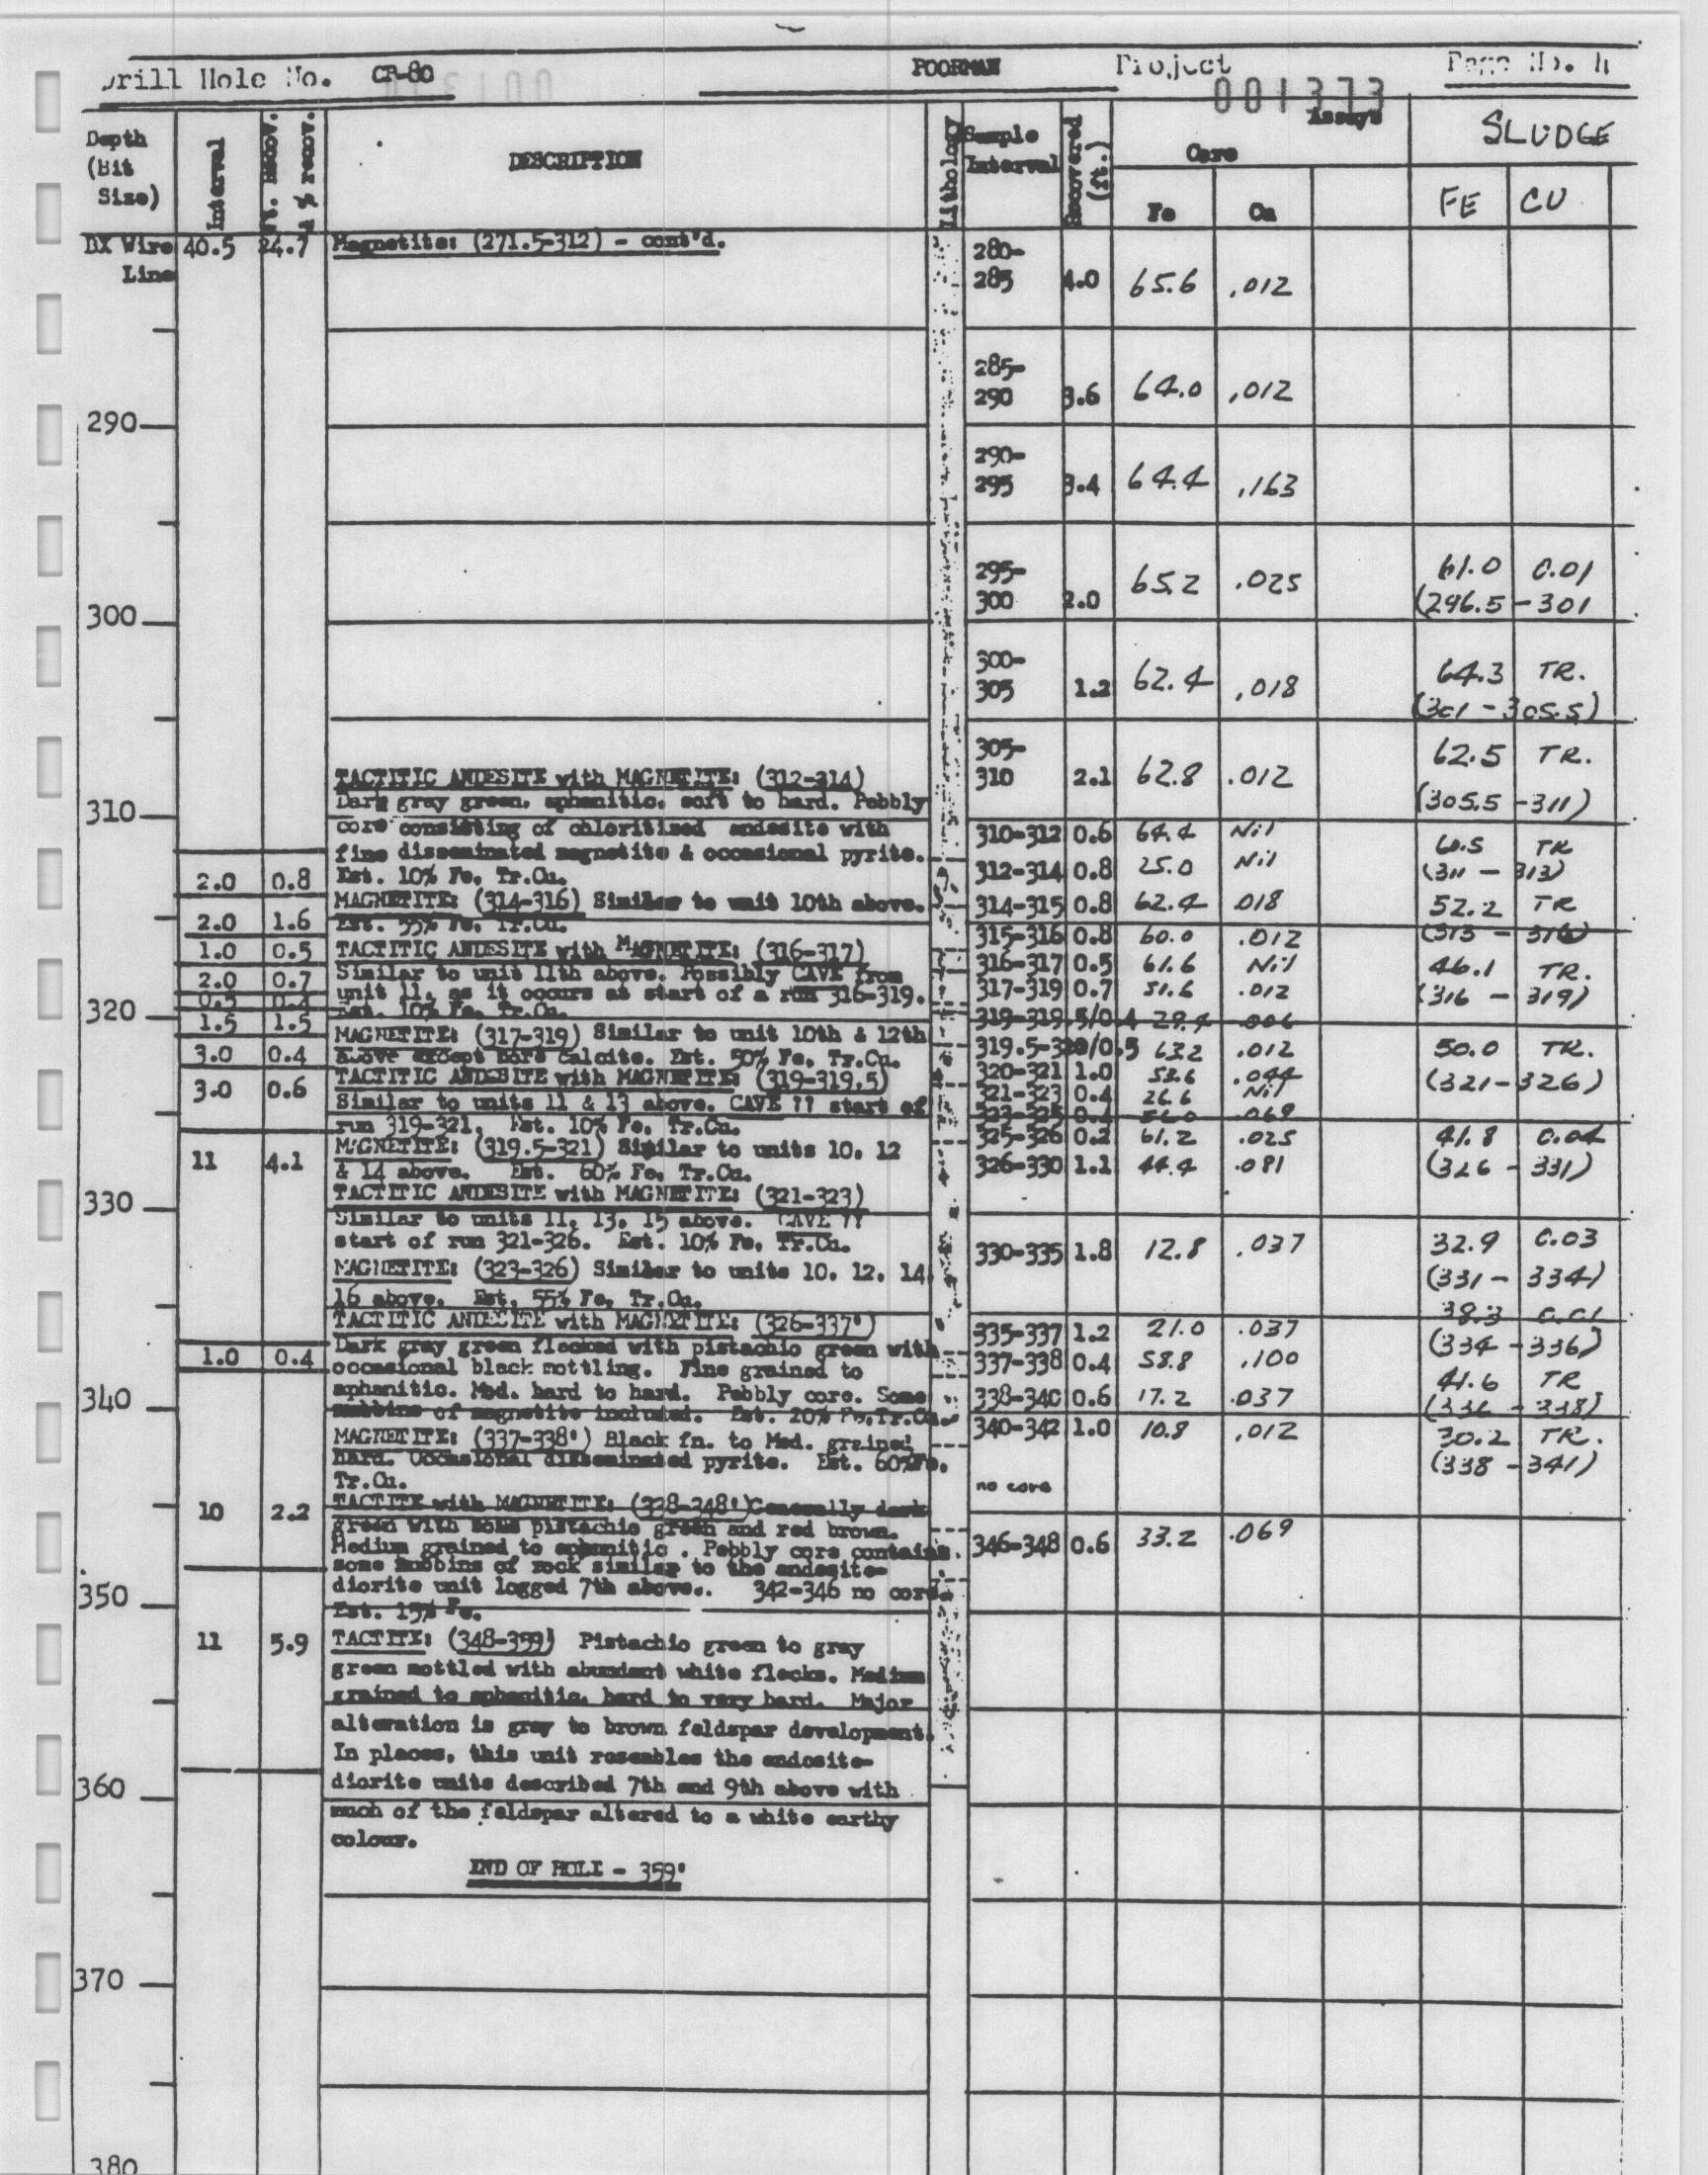 Drill Hole No. CR-80 POORMAN Project Page No. 4
001373
Depth (Bit Size)
Interval
Ft. Recov. & % recov.
DESCRIPTION
Lithology
Sample Interval
Recovered (ft.)
Assays
Core
Fe Cu
SLUDGE
FE CU
BX Wire Line 40.5 24.7 Magnetite: (271.5-312) - cont'd.
280-
285 4.0 65.6 .012
285-
290 3.6 64.0 .012
290
290-
295 3.4 64.4 .163
295-
300 2.0 65.2 .025
61.0 0.01
(296.5-301
300
300-
305 1.2 62.4 .018
64.3 TR.
(301-305.5)
305-
310 2.1 62.8 .012
62.5 TR.
(305.5-311)
310
TACTITIC ANDESITE with MAGNETITE: (312-314)
Dark gray green, aphanitic, soft to hard. Pebbly
core consisting of chloritized andesite with
fine disseminated magnetite & occasional pyrite.
Est. 10% Fe, Tr.Cu.
2.0 0.8
MAGNETITE: (314-316) Similar to unit 10th above.
Est. 55% Fe, Tr.Cu.
2.0 1.6
TACTITIC ANDESITE with MAGNETITE: (316-317)
1.0 0.5
Similar to unit 11th above. Possibly CAVE from
2.0 0.7
unit 11, as it occurs at start of a run 316-319.
0.5 0.4
Est. 10% Fe, Tr.Cu.
320
1.5 1.5
MAGNETITE: (317-319) Similar to unit 10th & 12th
above except more calcite. Est. 50% Fe, Tr.Cu.
3.0 0.4
TACTITIC ANDESITE with MAGNETITE: (319-319.5)
3.0 0.6
Similar to units 11 & 13 above. CAVE ?? start of
run 319-321. Est. 10% Fe, Tr.Cu.
MAGNETITE: (319.5-321) Similar to units 10, 12
11 4.1
& 14 above. Est. 60% Fe, Tr.Cu.
TACTITIC ANDESITE with MAGNETITE: (321-323)
330
Similar to units 11, 13, 15 above. CAVE ??
start of run 321-326. Est. 10% Fe, Tr.Cu.
MAGNETITE: (323-326) Similar to units 10, 12, 14,
16 above. Est. 55% Fe, Tr.Cu.
TACTITIC ANDESITE with MAGNETITE: (326-337')
Dark gray green flecked with pistachio green with
1.0 0.4
occasional black mottling. Fine grained to
aphanitic. Med. hard to hard. Pebbly core. Some
340
nubbins of magnetite included. Est. 20% Fe,Tr.Cu.
MAGNETITE: (337-338') Black fn. to Med. grained
hard. Occasional disseminated pyrite. Est. 60%Fe.
Tr.Cu.
TACTITE with MAGNETITE: (328-348')Generally dark
10 2.2
green with some pistachio green and red brown.
Medium grained to aphanitic. Pebbly core contains
some nubbins of rock similar to the andesite-
diorite unit logged 7th above.. 342-346 no core
350
Est. 15% Fe.
11 5.9
TACTITE: (348-359) Pistachio green to gray
green mottled with abundant white flecks. Medium
grained to aphanitic, hard to very hard. Major
alteration is gray to brown feldspar development.
In places, this unit resembles the andesite-
360
diorite units described 7th and 9th above with
much of the feldspar altered to a white earthy
colour.
END OF HOLE - 359'
310-312 0.6 64.4 Nil
312-314 0.8 25.0 Nil
314-315 0.8 62.4 .018
315-316 0.8 60.0 .012
316-317 0.5 61.6 Nil
317-319 0.7 51.6 .012
319-319.5/0.4 29.4 .006
319.5-320/0.5 63.2 .012
320-321 1.0 53.6 .044
321-323 0.4 26.6 Nil
323-325 0.4 56.0 .069
325-326 0.2 61.2 .025
326-330 1.1 44.4 .081
330-335 1.8 12.8 .037
335-337 1.2 21.0 .037
337-338 0.4 58.8 .100
338-340 0.6 17.2 .037
340-342 1.0 10.8 .012
no core
346-348 0.6 33.2 .069
60.5 TR
(311-313)
52.2 TR
(313-316)
46.1 TR.
(316-319)
50.0 TR.
(321-326)
41.8 0.04
(326-331)
32.9 0.03
(331-334)
38.3 0.01
(334-336)
41.6 TR
(336-338)
30.2 TR.
(338-341)
370
380